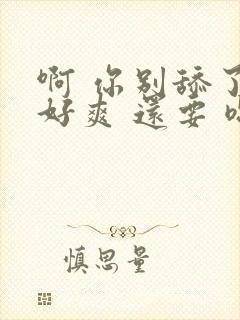 啊 你别舔了
好爽 還要
慎思量